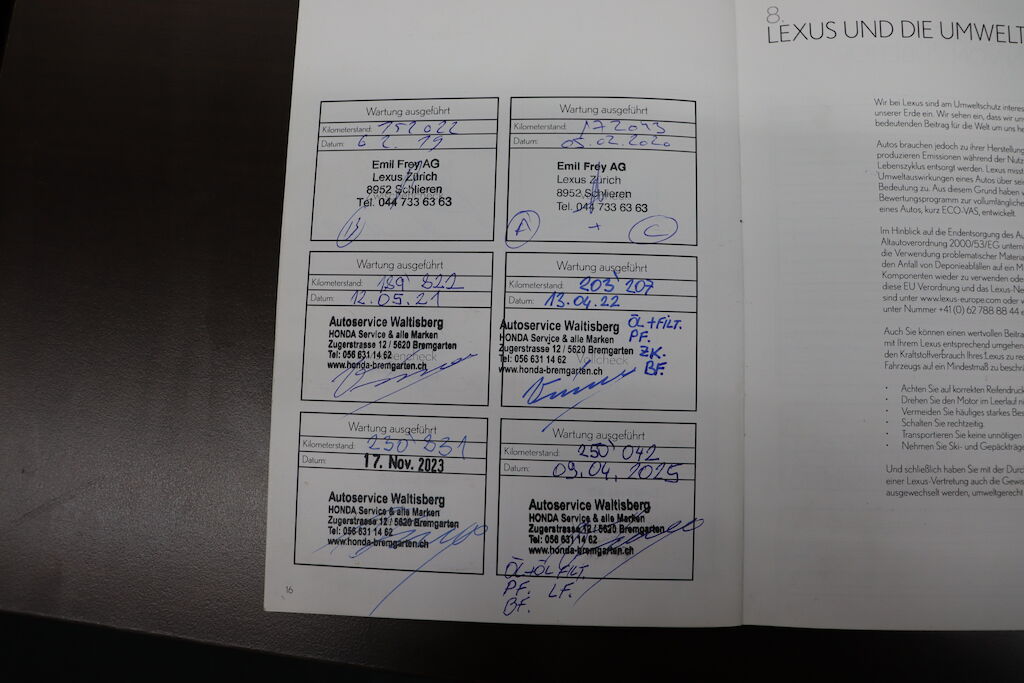 Wartung ausgeführt
Kilometerstand: 152022
Datum: 6 2. 19
Emil Frey AG
Lexus Zürich
8952 Schlieren
Tel. 044 733 63 63
B
Wartung ausgeführt
Kilometerstand: 172093
Datum: 05.02.2020
Emil Frey AG
Lexus Zürich
8952 Schlieren
Tel. 044 733 63 63
A + C
Wartung ausgeführt
Kilometerstand: 189'822
Datum: 12.05.21
Autoservice Waltisberg
HONDA Service & alle Marken
Zugerstrasse 12 / 5620 Bremgarten
Tel: 056 631 14 62
www.honda-bremgarten.ch
Wartung ausgeführt
Kilometerstand: 203'207
Datum: 13.04.22
Autoservice Waltisberg
HONDA Service & alle Marken
Zugerstrasse 12 / 5620 Bremgarten
Tel: 056 631 14 62
www.honda-bremgarten.ch
ÖL + FILT.
PF.
ZK.
BF.
Wartung ausgeführt
Kilometerstand: 230'831
Datum: 17. Nov. 2023
Autoservice Waltisberg
HONDA Service & alle Marken
Zugerstrasse 12 / 5620 Bremgarten
Tel: 056 631 14 62
www.honda-bremgarten.ch
Wartung ausgeführt
Kilometerstand: 250'042
Datum: 09.04.2025
Autoservice Waltisberg
HONDA Service & alle Marken
Zugerstrasse 12 / 5620 Bremgarten
Tel: 056 631 14 62
www.honda-bremgarten.ch
ÖL+ÖL FILT.
PF. LF.
BF.
16
8.
LEXUS UND DIE UMWELT
Wir bei Lexus sind am Umweltschutz
unserer Erde ein. Wir sehen ein, dass wir
bedeutenden Beitrag für die Welt um uns
Autos brauchen jedoch zu ihrer Herstellung
produzieren Emissionen während der
Lebenszyklus entsorgt werden. Lexus
Umweltauswirkungen eines Autos über
Bedeutung zu. Aus diesem Grund haben
Bewertungsprogramm zur
eines Autos, kurz ECO-VAS, entwickelt.
Im Hinblick auf die Endentsorgung des
Altautoverordnung 2000/53/EG
die Verwendung problematischer
den Anfall von Deponieabfällen auf ein
Komponenten wieder zu verwenden oder
diese EU Verordnung und das
sind unter www.lexus-europe.com oder
unter Nummer +41 (0) 62 788 88 44
Auch Sie können einen wertvollen
mit Ihrem Lexus entsprechend
den Kraftstoffverbrauch Ihres Lexus zu
Fahrzeugs auf ein Mindestmaß zu
• Achten Sie auf korrekten Reifendruck
• Drehen Sie den Motor im Leerlauf
• Vermeiden Sie häufiges starkes
• Schalten Sie rechtzeitig.
• Transportieren Sie keine unnötigen
• Nehmen Sie Ski- und
Und schließlich haben Sie mit der
einer Lexus-Vertretung auch die
ausgewechselt werden,